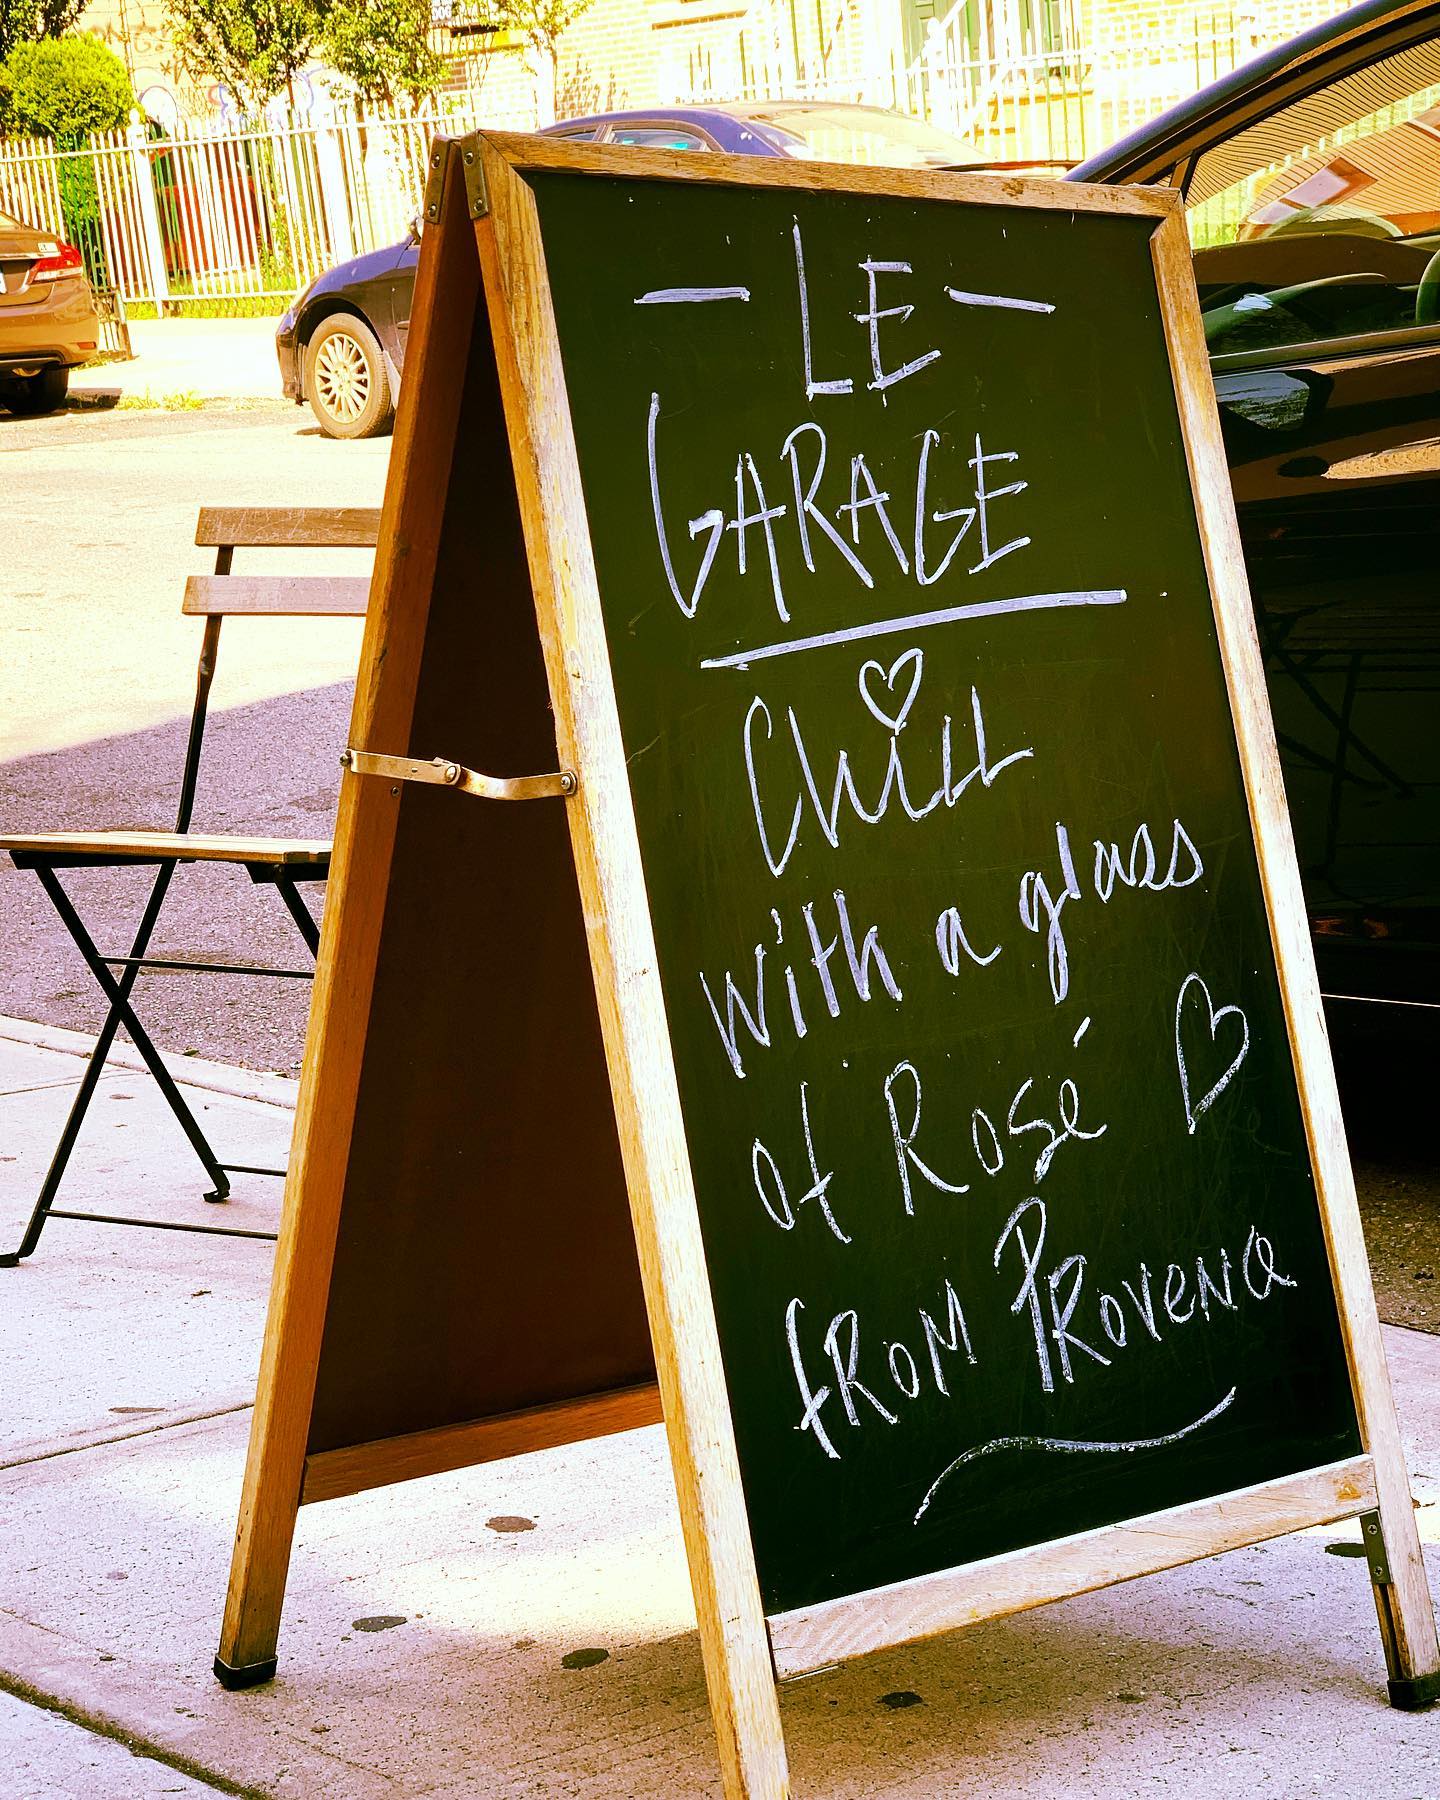 - LE -
GARAGE
Chill
with a glass
of Rosé
from Provence